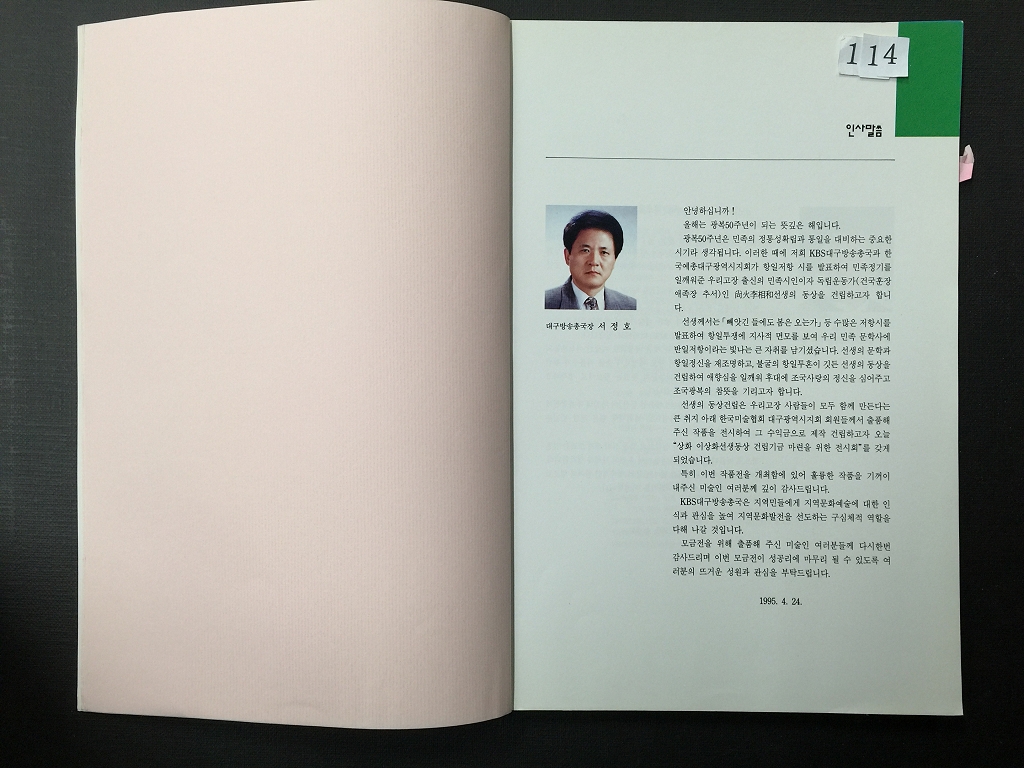 114
인사말씀
대구방송총국장 서 정 호
안녕하십니까!
올해는 광복50주년이 되는 뜻깊은 해입니다.
광복50주년은 민족의 정통성확립과 통일을 대비하는 중요한
시기라 생각됩니다. 이러한 때에 저희 KBS대구방송총국과 한
국예총대구광역시지회가 항일저항 시를 발표하여 민족정기를
일깨워준 우리고장 출신의 민족시인이자 독립운동가(건국훈장
애족장 추서)인 尙火李相和선생의 동상을 건립하고자 합니
다.
선생께서는 「빼앗긴 들에도 봄은 오는가」 등 수많은 저항시를
발표하여 항일투쟁에 지사적 면모를 보여 우리 민족 문학사에
반일저항이라는 빛나는 큰 자취를 남기셨습니다. 선생의 문학과
항일정신을 재조명하고, 불굴의 항일투혼이 깃든 선생의 동상을
건립하여 애향심을 일깨워 후대에 조국사랑의 정신을 심어주고
조국광복의 참뜻을 기리고자 합니다.
선생의 동상건립은 우리고장 사람들이 모두 함께 만든다는
큰 취지 아래 한국미술협회 대구광역시지회 회원들께서 출품해
주신 작품을 전시하여 그 수익금으로 제작 건립하고자 오늘
“상화 이상화선생동상 건립기금 마련을 위한 전시회”를 갖게
되었습니다.
특히 이번 작품전을 개최함에 있어 훌륭한 작품을 기꺼이
내주신 미술인 여러분께 깊이 감사드립니다.
KBS대구방송총국은 지역민들에게 지역문화예술에 대한 인
식과 관심을 높여 지역문화발전을 선도하는 구심체적 역할을
다해 나갈 것입니다.
모금전을 위해 출품해 주신 미술인 여러분들께 다시한번
감사드리며 이번 모금전이 성공리에 마무리 될 수 있도록 여
러분의 뜨거운 성원과 관심을 부탁드립니다.
1995. 4. 24.